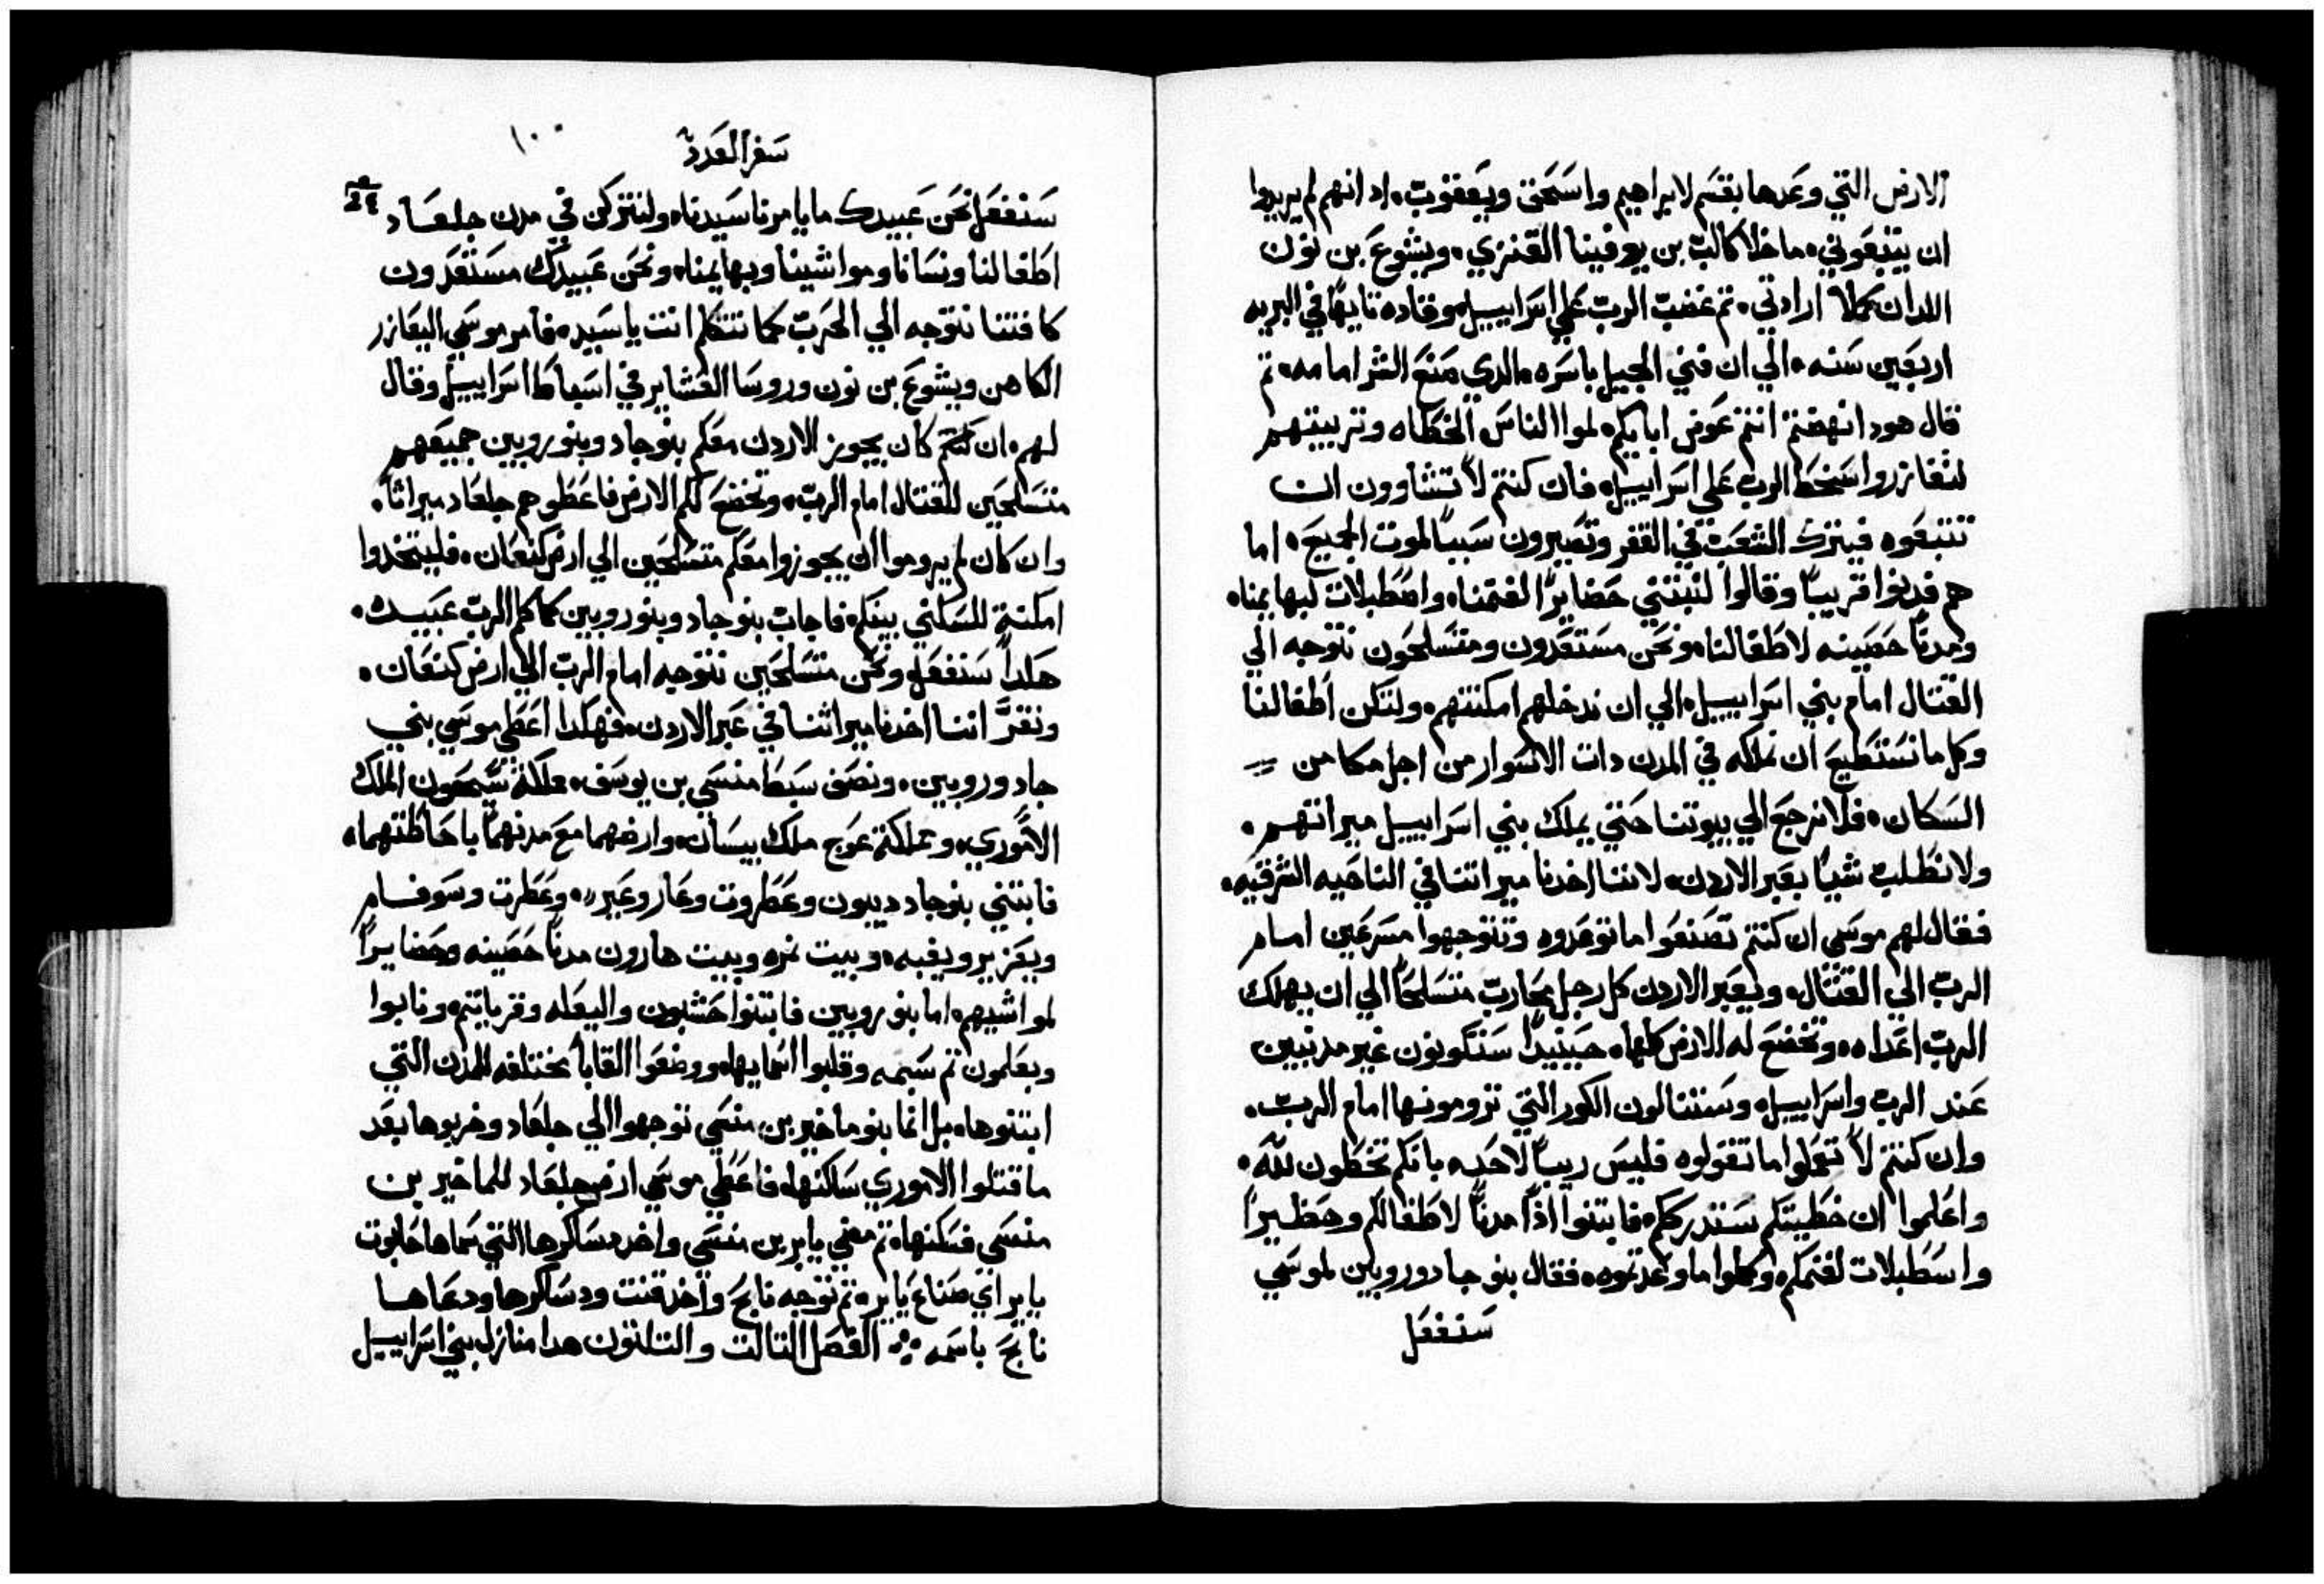 الارض التي وعدها بقسم لابراهيم واسحق ويعقوب. اد انهم لم يريدوا
ان يتبعوني. ما خلا كالب بن يوفينا القنزي. ويشوع بن نون
اللدان كملا ارادتي. تم غضب الرب علي اسراييل. وقاده تايهًا في البريه
اربعين سنه. الي ان فني الجيل باسره. الدي صنع الشر امامه. تم
قال هود انهضتم انتم عوض ابايكم. لموا الناس الخطاه وتربيتهم
لتغازروا سخط الرب علي اسراييل. فان كنتم لا تشاوون ان
تتبعوه فيترك الشعب في القفر وتصيرون سببًا لموت الجميع. اما
هم فدنوا قريبًا وقالوا لنبتني حضايرًا لغنمنا. واصطبلات لبهايمنا.
ومدنًا حصينه لاطفالنا. ونحن مستعدون ومتسلحون نتوجه الي
القتال امام بني اسراييل. الي ان ندخلهم امكنتهم. ولتكن اطفالنا
وكل ما نستطيع ان نملكه في المدن دات الاسوار من اجل مكامن
السكان. فلا نرجع الي بيوتنا حتي يملك بني اسراييل ميراتهم.
ولا نطلب شيًا بعبر الاردن. لاننا اخدنا ميراتنا في الناحيه الشرقيه.
فقال لهم موسي ان كنتم تصنعوا ما توعدوه وتتوجهوا مسرعين امام
الرب الي القتال. ويعبر الاردن كل رجل محارب متسلحًا الي ان يهلك
الرب اعداه. وتخضع له الارض كلها. حينيدًا ستكونون غير مدنبين
عند الرب واسراييل. وستنالون الكور التي ترومونها امام الرب.
وان كنتم لا تعملوا ما تقولوه فليس ريبًا لاحد. بانكم تخطون لله.
واعلموا ان خطيتكم ستدرككم. فابتنوا اذًا مدنًا لاطفالكم وحظيرًا
واسطبلات لغنمكم. وكملوا ما وعدتموه. فقال بنو جاد وروبين لموسي
سنفعل
سفر العدد
١٠٠
سنفعل نحن عبيدك ما يامرنا سيدنا. ولنتركن في مدن جلعاد
اطفالنا ونسانا ومواشينا وبهايمنا. ونحن عبيدك مستعدون
كافتنا نتوجه الي الحرب كما تتكلم انت يا سيد. فامر موسي اليعازر
الكاهن ويشوع بن نون وروسا العشاير في اسباط اسراييل وقال
لهم. ان كان يجوز الاردن معكم بنو جاد وبنو روبين جميعهم
متسلحين للقتال امام الرب. وتخضع لكم الارض فاعطوهم جلعاد ميراثًا.
وان كان لم يروموا ان يجوزوا معكم متسلحين الي ارض كنعان. فليتخدوا
امكنة للسكني بينكم. فاجاب بنو جاد وبنو روبين كما كلم الرب عبيدك.
هكدا سنفعل. ونحن متسلحين نتوجه امام الرب الي ارض كنعان.
ونقرَّ اننا اخدنا ميراثنا في عبر الاردن. فهكدا اعطي موسي بني
جاد وروبين. ونصف سبط منسي بن يوسف. مملكة سيحون الملك
الاموري. ومملكة عوج ملك بيسان. وارضهما مع مدنهما باحاطتهما.
فابتني بنو جاد ديبون وعطروت وعاروعير. وعطرت وسوفام
ويعزير ويقبه. وبيت نمره وبيت هارون مدنًا حصينه وحضايرًا
لمواشيهم. اما بنو روبين فابتنوا حشبون واليعله وقرياتم. ونابوا
وبعلمون تم سبمه وقلبوا اسمايها. ووضعوا القابًا مختلفه للمدن التي
ابتنوها. بل انما بنو ماخير بن منسي توجهوا الي جلعاد وخربوها بعد
ما قتلوا الاموري ساكنها. فاعطي موسي ارض جلعاد للماخير بن
منسي فسكنها. تم مضي ياير بن منسي واخد دساكرها التي سماها حابوت
ياير اي ضياع ياير. تم توجه نابح واخد قنت ودساكرها ودعاها
نابح باسمه. الفصل التالت والتلتون هدا منازل بني اسراييل